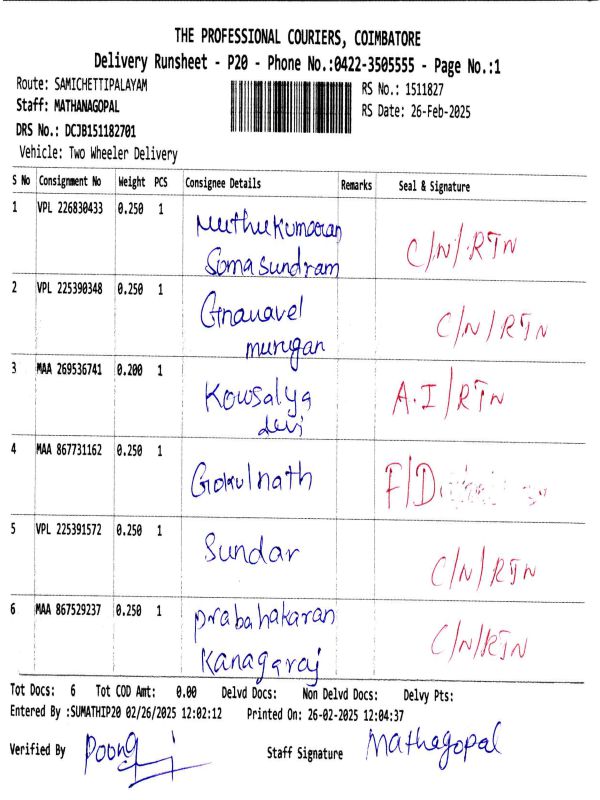 THE PROFESSIONAL COURIERS, COIMBATORE
Delivery Runsheet - P20 - Phone No.:0422-3505555 - Page No.:1
Route: SAMICHETTIPALAYAM
RS No.: 1511827
Staff: MATHANAGOPAL
RS Date: 26-Feb-2025
DRS No.: DCJB151182701
Vehicle: Two Wheeler Delivery
S No Consignment No Weight PCS Consignee Details Remarks Seal & Signature
1 VPL 226830433 0.250 1 Muthukumaran
Somasundram C/N/RTN
2 VPL 225390348 0.250 1 Gnanavel
murugan C/N/RTN
3 MAA 269536741 0.200 1 Kowsalya
devi A.I/RTN
4 MAA 867731162 0.250 1 Gokulnath F/D
5 VPL 225391572 0.250 1 Sundar C/N/RTN
6 MAA 867529237 0.250 1 prabahakaran
Kanagaraj C/N/RTN
Tot Docs: 6 Tot COD Amt: 0.00 Delvd Docs: Non Delvd Docs: Delvy Pts:
Entered By :SUMATHIP20 02/26/2025 12:02:12 Printed On: 26-02-2025 12:04:37
Verified By Staff Signature Mathagopal